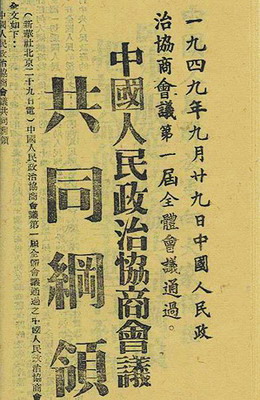 一九四九年九月廿九日中國人民政
治協商會議第一屆全體會議通過。
中國人民政治協商會議
共同綱領
（新華社北京二十九日電）中國人民政治協商會議第一屆全體會議通過之中國人民政治協商會
全文如下：
中國人民政治協商會議共同綱領